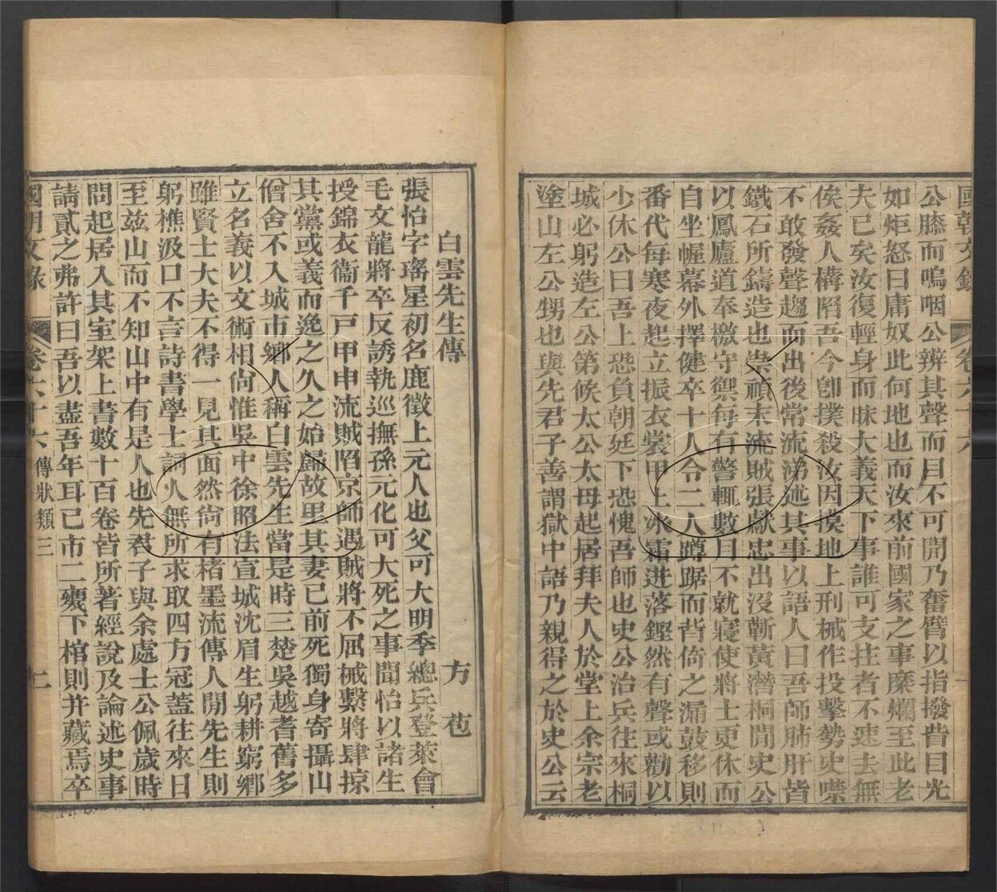 國朝文錄 卷六十六
公膝而嗚咽公辨其聲而目不可開乃奮臂以指撥眥目光
如炬怒曰庸奴此何地也而汝來前國家之事糜爛至此老
夫已矣汝復輕身而昧大義天下事誰可支拄者不速去無
俟姦人構陷吾今卽撲殺汝因摸地上刑械作投擊勢史噤
不敢發聲趨而出後常流涕述其事以語人曰吾師肺肝皆
鐵石所鑄造也崇禎末流賊張獻忠出沒蘄黃潛桐閒史公
以鳳廬道奉檄守禦每有警輒數月不就寢使將士更休而
自坐幄幕外擇健卒十人令二人蹲踞而背倚之漏鼓移則
番代每寒夜起立振衣裳甲上冰霜迸落鏗然有聲或勸以
少休公曰吾上恐負朝廷下恐愧吾師也史公治兵往來桐
城必躬造左公第候太公太母起居拜夫人於堂上余宗老
塗山左公甥也與先君子善謂獄中語乃親得之於史公云
白雲先生傳
方苞
張怡字瑤星初名鹿徵上元人也父可大明季總兵登萊會
毛文龍將卒反誘執巡撫孫元化可大死之事聞怡以諸生
授錦衣衞千戸甲申流賊陷京師遇賊將不屈械繫將肆掠
其黨或義而逸之久之始歸故里其妻已前死獨身寄攝山
僧舍不入城市鄉人稱白雲先生當是時三楚吳越耆舊多
立名義以文術相尙惟吳中徐昭法宣城沈眉生躬耕窮鄉
雖賢士大夫不得一見其面然尙有楮墨流傳人閒先生則
躬樵汲口不言詩書學士詞人無所求取四方冠蓋往來日
至茲山而不知山中有是人也先君子與余處士公佩歲時
問起居入其室架上書數十百卷皆所著經說及論述史事
請貳之弗許曰吾以盡吾年耳已市二甕下棺則并藏焉卒
國朝文錄 卷六十六 傳狀類三